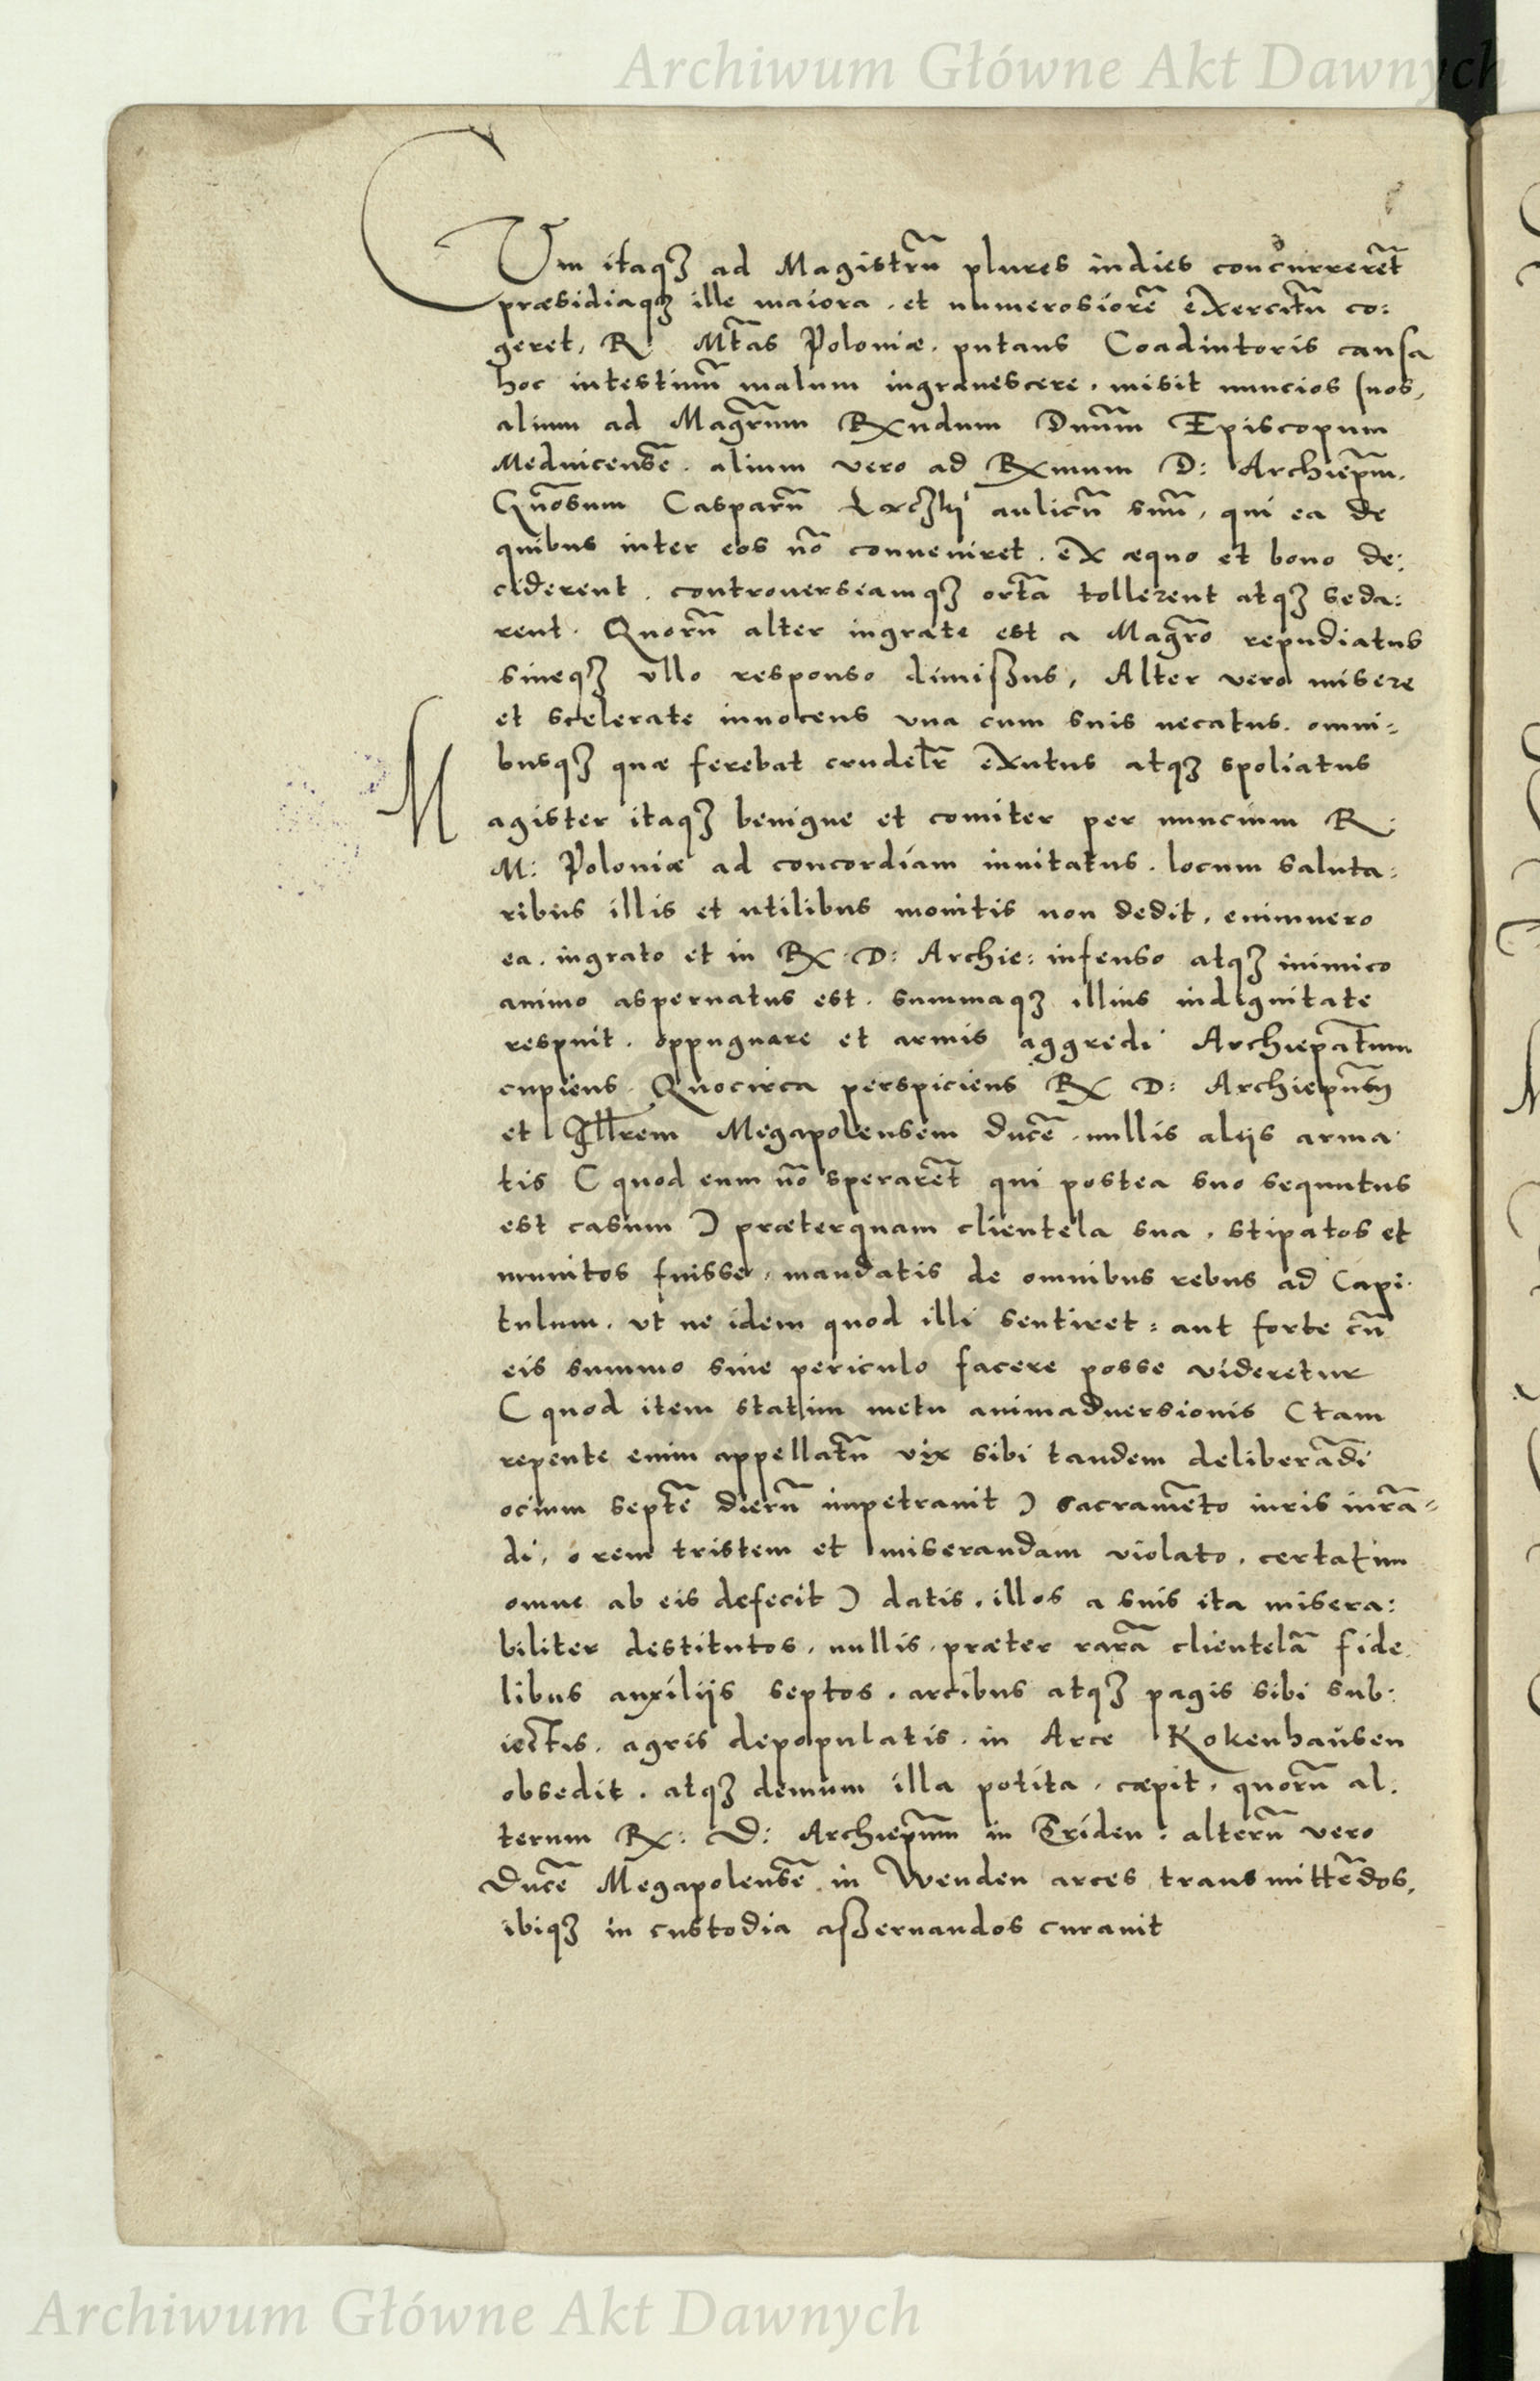 Archiwum Główne Akt Dawnych
CVm itaqꝫ ad Magistrũ plures indies concurrerẽt
præsidiaqꝫ ille maiora . et numerosiorẽ exercitũ co:
geret, R: Mt̃as Poloniæ . putans Coadiutoris causa
hoc intestinũ malum ingrauescere . misit nuncios suos,
alium ad Magr̃um Rxndum Dnũm Episcopum
Mednicensẽ . alium vero ad Rxmum D: Archiep̃m.
Gñosum Casparũ aulicũ suũ, qui ea de
quibus inter eos nõ conueniret . ex æquo et bono de:
ciderent . controuersiamqꝫ ortã tollerent atqꝫ seda:
rent . Quorũ alter ingrate est a Magr̃o repudiatus
sineqꝫ vllo responso dimissus, Alter vero misere
et scelerate innocens vna cum suis necatus . omni-
busqꝫ quæ ferebat crudelr̃ exutus atqꝫ spoliatus
Magister itaqꝫ benigne et comiter per nuncium R:
M: Poloniæ ad concordiam inuitatus . locum saluta:
ribus illis et utilibus monitis non dedit, enimuero
ea . ingrato et in Rx . D: Archie: infenso atqꝫ inimico
animo aspernatus est . summaqꝫ illius indignitate
respuit . oppugnare et armis aggredi Archiepat̃um
cupiens . Quocirca perspiciens Rx D: Archiepũm
et Ill̃rem Megapolensem ducẽ . nullis alijs arma
tis ( quod eum nõ sperarẽt qui postea suo sequutus
est casum ) præterquam clientela sua . stipatos et
munitos fuisse, mandatis de omnibus rebus ad Capi.
tulum . vt ne idem quod illi sentiret : aut forte cũ
eis summo sine periculo facere posse videretur
( quod item statim metu animaduersionis ( tam
repente enim appellatũ vix sibi tandem deliberãdi
ocium septẽ dierũ impetrauit ) sacramẽto iuris iurã-
di, o rem tristem et miserandam violato . certatim
omne ab eis defecit ) datis . illos a suis ita misera:
biliter destitutos . nullis . præter rarã clientelã fide
libus auxilijs septos . arcibus atqꝫ pagis sibi sub:
iectis . agris depopulatis . in Arce Kokenhausen
obsedit . atqꝫ demum illa potita . cæpit . quorũ al.
terum Rx: D: Archiep̃um in Triden : alterũ vero
Ducẽ Megapolensẽ . in Wenden arces transmittẽdos,
ibiqꝫ in custodia asseruandos curauit
Archiwum Główne Akt Dawnych